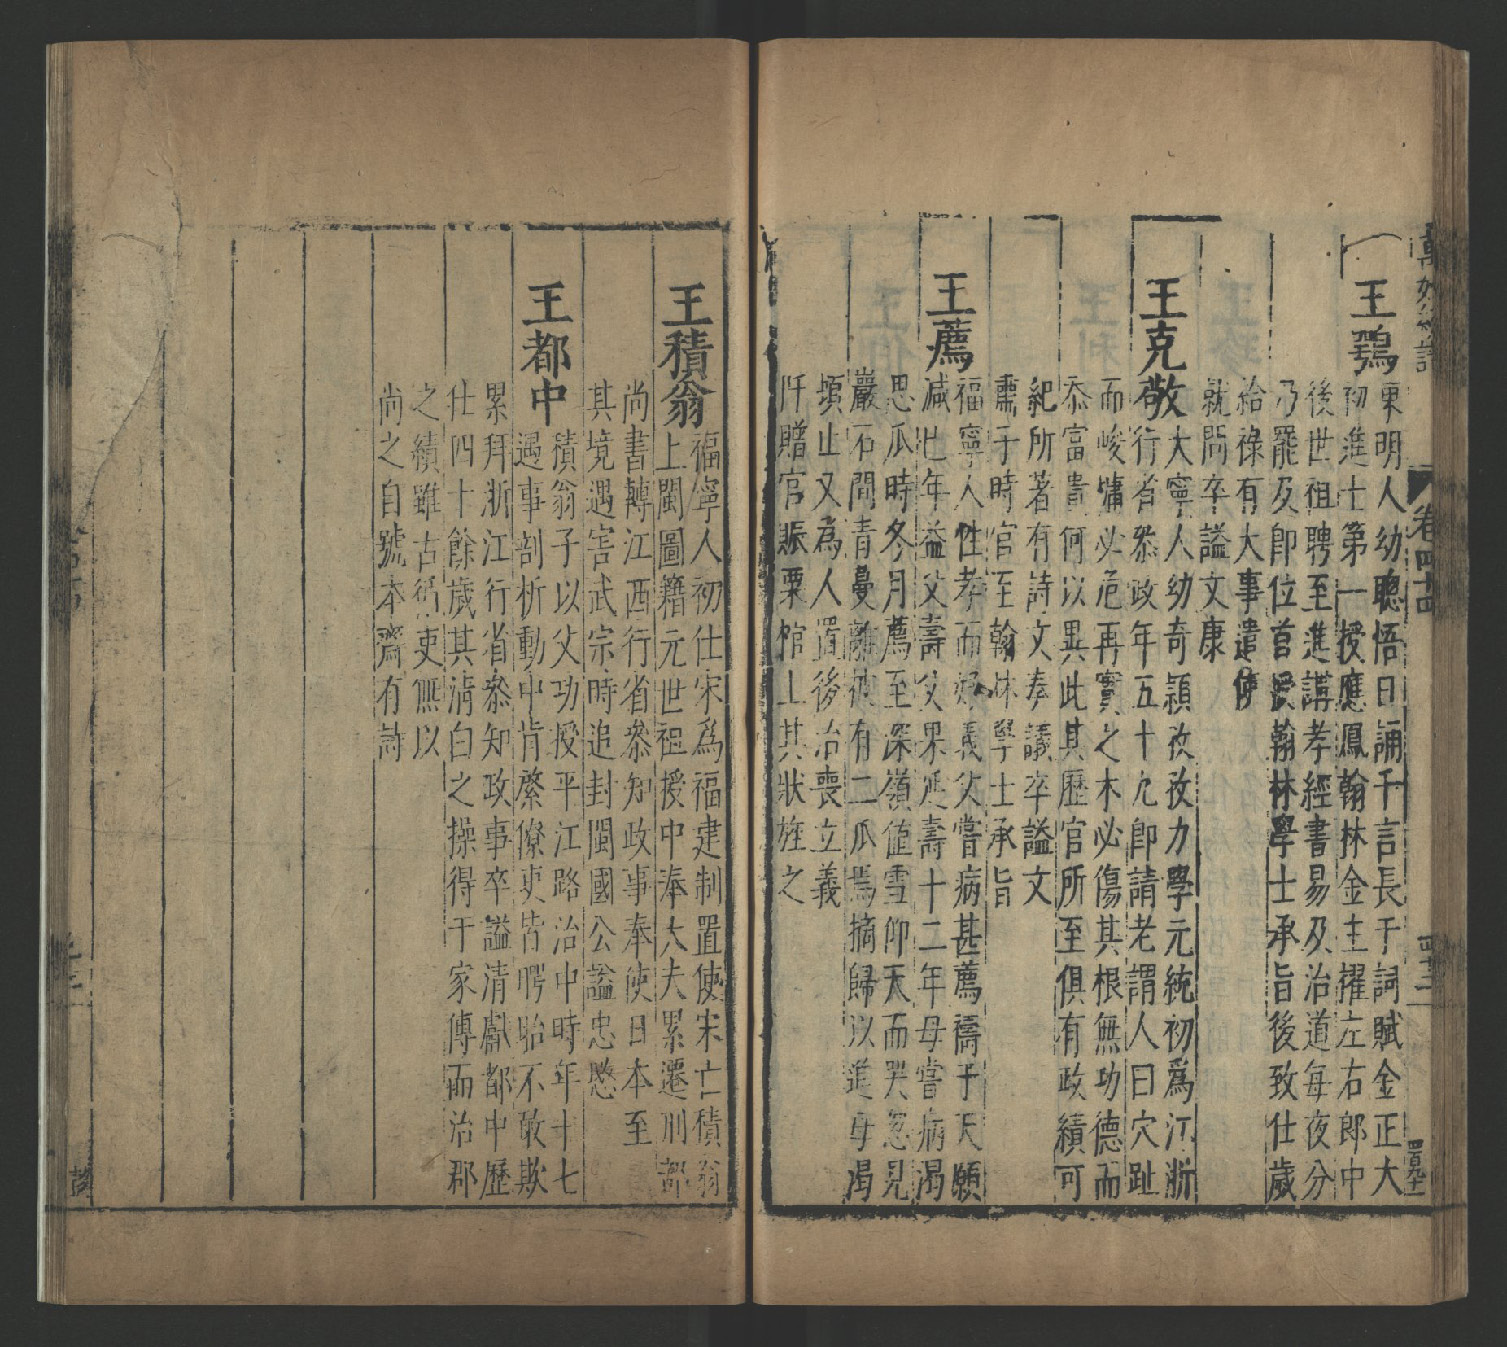 卷四十四
四十三
王鶚
東明人幼聰悟日誦千言長于詞賦金正大
初進士第一授應鳳翰林金主擢左右郎中
後世祖聘至進講孝經書易及治道每夜分
乃罷及即位首授翰林學士承旨後致仕歲
給祿有大事遣使
就問卒謚文康
王克敬
大寧人幼奇頴孜孜力學元統初爲江浙
行省叅政年五十九即請老謂人曰穴趾
而峻墉必危再實之木必傷其根無功德而
忝富貴何以異此其歷官所至俱有政績可
紀所著有詩文奉議卒謚文
肅子時官至翰林學士承旨
王薦
福寧人性孝而好義父嘗病甚薦禱于天願
减已年益父壽父果延壽十二年母嘗病渴
思瓜時冬月薦至深嶺值雪仰天而哭忽見
巖石間青蔓離披有二瓜焉摘歸以進母渴
頓止又為人置後治喪立義
阡贈官賑粟棺上其狀旌之
王積翁
福寧人初仕宋爲福建制置使宋亡積翁
上閩圖籍元世祖授中奉大夫累遷刑部
尚書轉江西行省叅知政事奉使日本至
其境遇害武宗時追封閩國公謚忠愍
王都中
積翁子以父功授平江路治中時年十七
遇事剖析動中肯綮僚吏皆愕眙不敢欺
累拜浙江行省叅知政事卒謚清獻都中歷
仕四十餘歲其清白之操得于家傳而治郡
之績雖古循吏無以
尚之自號本齋有詩